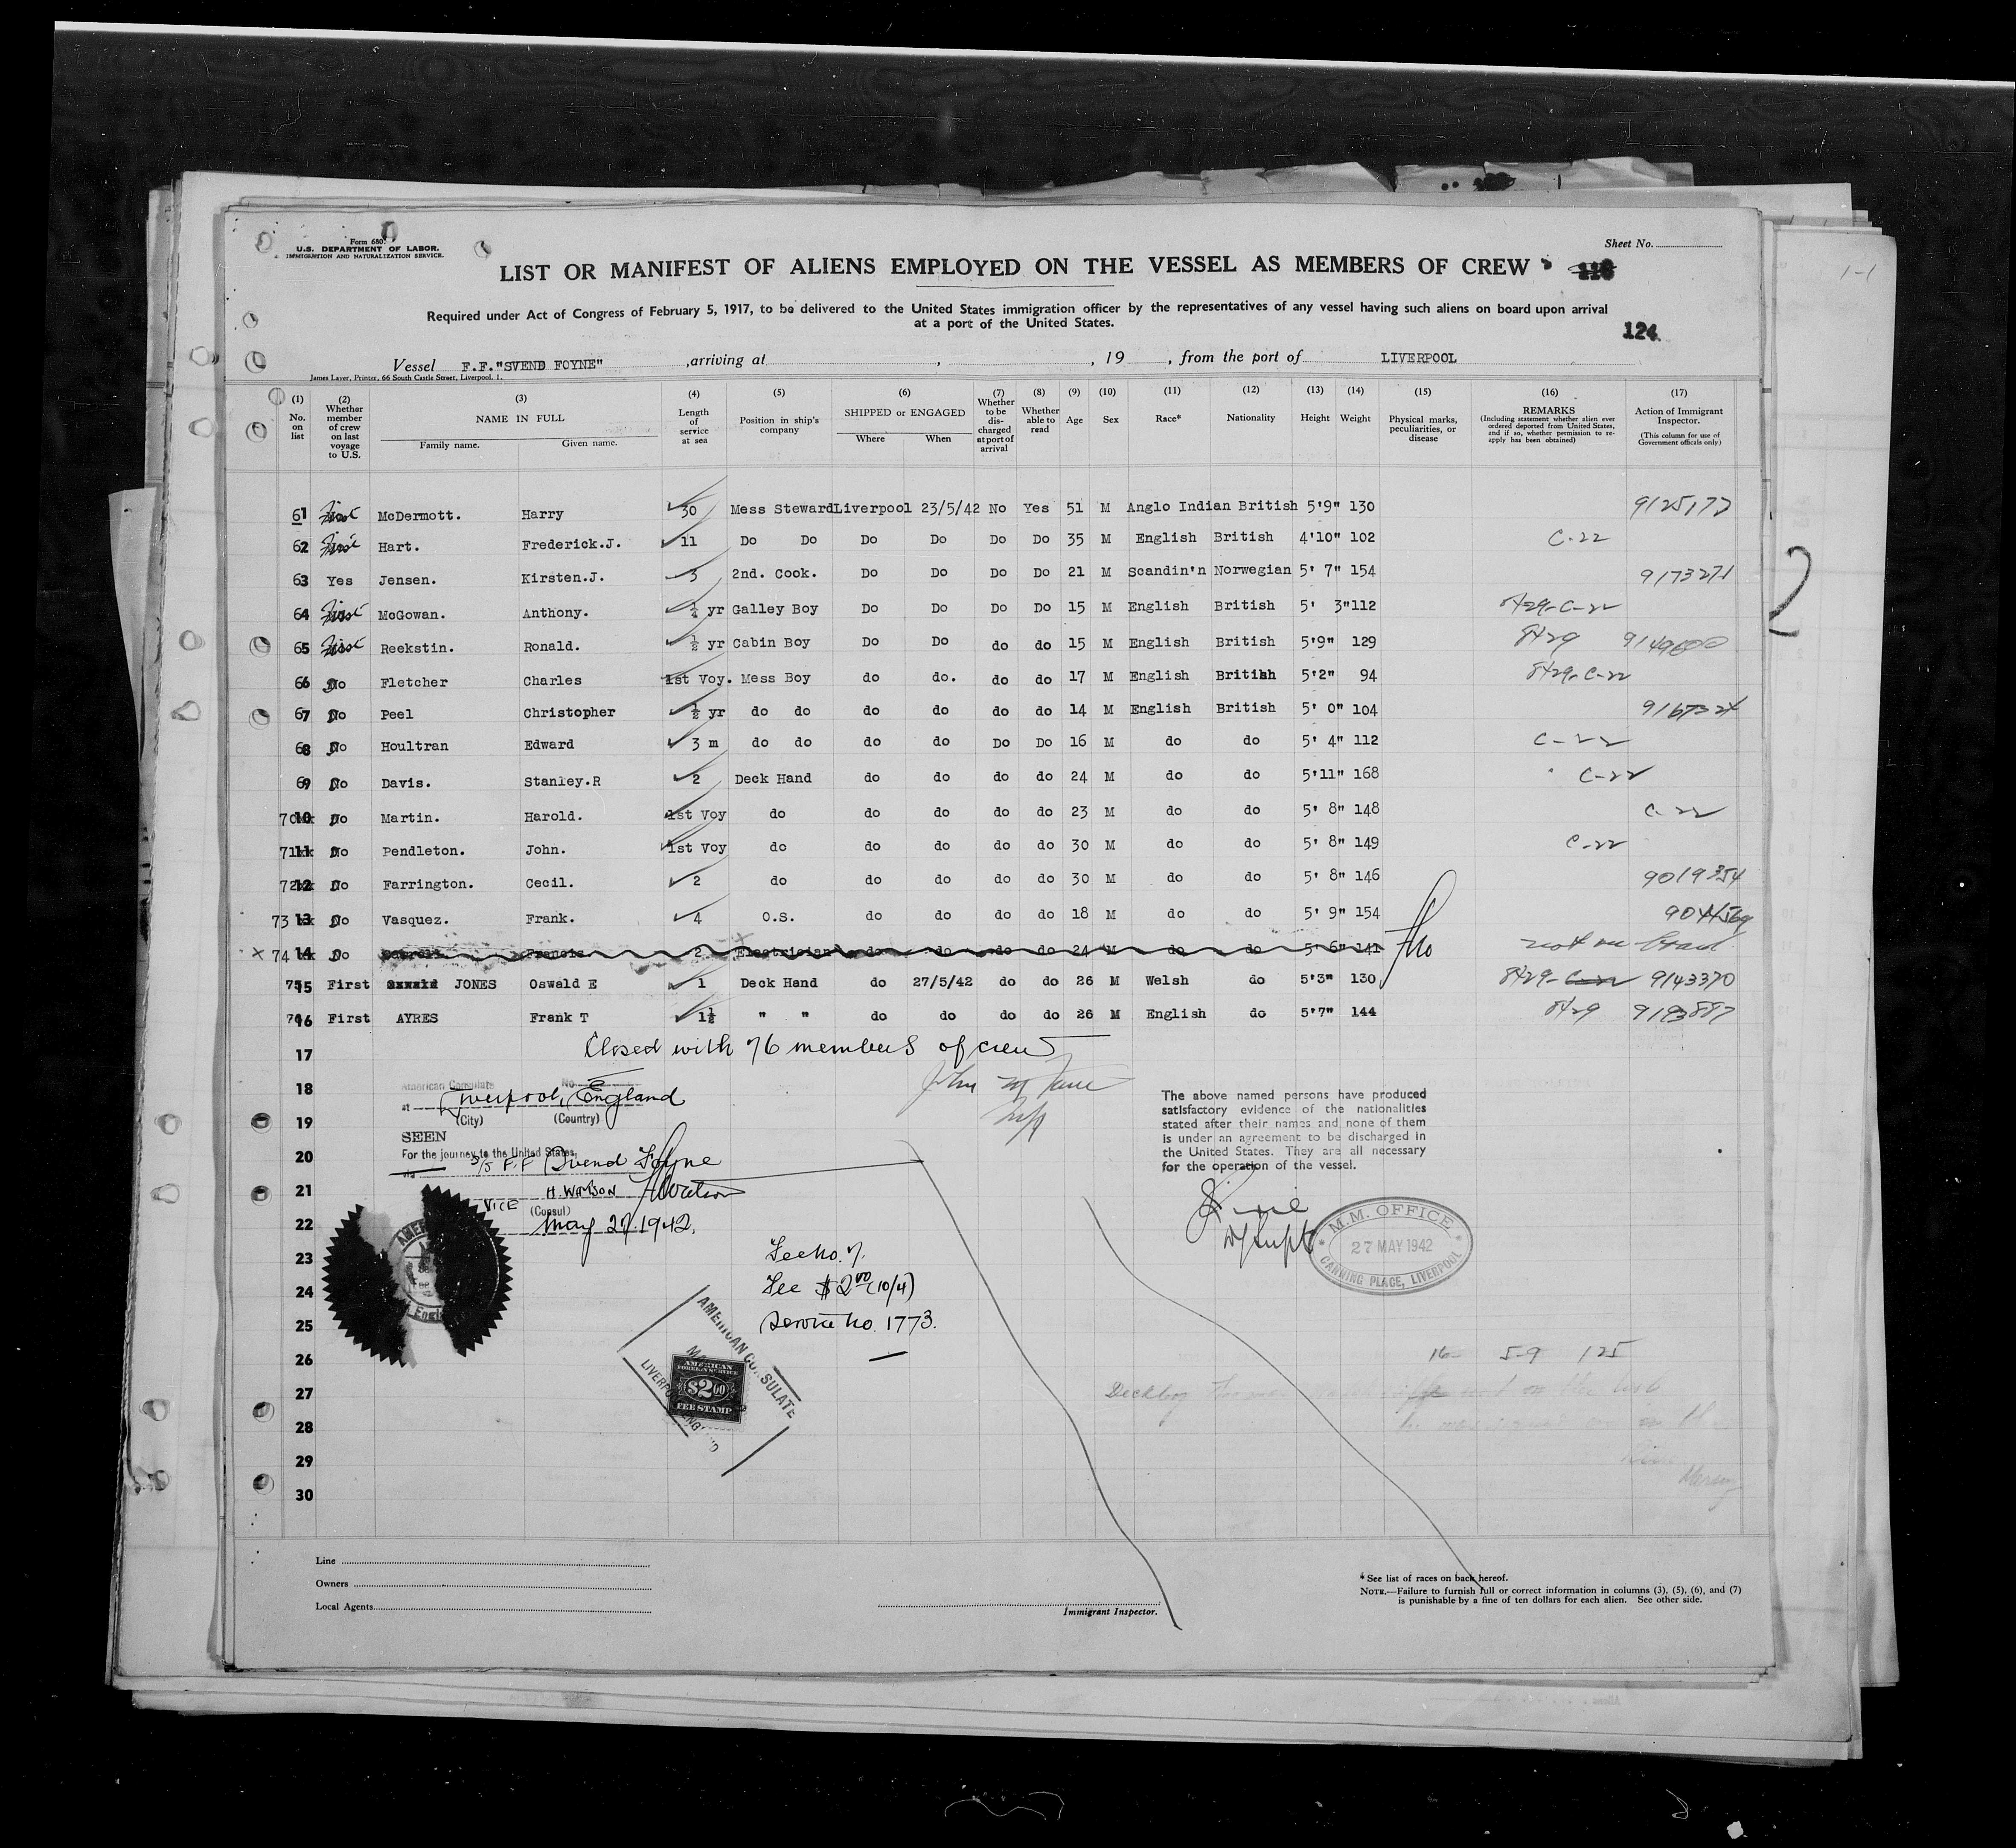 Form 680.
U.S. DEPARTMENT OF LABOR.
IMMIGRATION AND NATURALIZATION SERVICE.
Sheet No.
LIST OR MANIFEST OF ALIENS EMPLOYED ON THE VESSEL AS MEMBERS OF CREW
Required under Act of Congress of February 5, 1917, to be delivered to the United States immigration officer by the representatives of any vessel having such aliens on board upon arrival
at a port of the United States.
124
Vessel F.F."SVEND FOYNE" ,arriving at , , 19 , from the port of LIVERPOOL
James Laver, Printer, 66 South Castle Street, Liverpool. 1.
(1) No. on list
(2) Whether member of crew on last voyage to U.S.
(3) NAME IN FULL Family name. Given name.
(4) Length of service at sea
(5) Position in ship's company
(6) SHIPPED or ENGAGED Where When
(7) Whether to be discharged at port of arrival
(8) Whether able to read
(9) Age
(10) Sex
(11) Race*
(12) Nationality
(13) Height
(14) Weight
(15) Physical marks, peculiarities, or disease
(16) REMARKS (Including statement whether alien ever ordered deported from United States, and if so, whether permission to re-apply has been obtained)
(17) Action of Immigrant Inspector. (This column for use of Government officals only)
61 First McDermott. Harry 30 Mess Steward Liverpool 23/5/42 No Yes 51 M Anglo Indian British 5'9" 130 9125177
62 First Hart. Frederick.J. 11 Do Do Do Do Do Do 35 M English British 4'10" 102 C-22
63 Yes Jensen. Kirsten.J. 3 2nd. Cook. Do Do Do Do 21 M Scandin'n Norwegian 5' 7" 154 9173271
64 First McGowan. Anthony. ¼ yr Galley Boy Do Do Do Do 15 M English British 5' 3" 112 8429-C-22
65 First Reekstin. Ronald. ½ yr Cabin Boy Do Do do do 15 M English British 5'9" 129 8429 9149600
66 No Fletcher Charles 1st Voy. Mess Boy do do. do do 17 M English British 5'2" 94 8429-C-22
67 No Peel Christopher ½ yr do do do do do do 14 M English British 5' 0" 104
68 No Houltran Edward 3 m do do do do Do Do 16 M do do 5' 4" 112 C-22
69 No Davis. Stanley.R 2 Deck Hand do do do do 24 M do do 5'11" 168 C-22
70 10 No Martin. Harold. 1st Voy do do do do do 23 M do do 5' 8" 148 C-22
71 11 No Pendleton. John. 1st Voy do do do do do 30 M do do 5' 8" 149 C-22
72 12 No Farrington. Cecil. 2 do do do do do 30 M do do 5' 8" 146 9019354
73 13 No Vasquez. Frank. 4 O.S. do do do do 18 M do do 5' 9" 154
x 74 14 No Francis 2 Electrician do do do do 24 M do do 5' 6" 141 not on board
75 15 First JONES Oswald E 1 Deck Hand do 27/5/42 do do 26 M Welsh do 5'3" 130 8429-C-22 9143370
76 16 First AYRES Frank T 1½ " " do do do do 26 M English do 5'7" 144 8429 9193887
17 Closed with 76 members of crew
18 American Consulate No.
at Liverpool, England
19 (City) (Country)
SEEN
20 For the journey to the United States,
via S/S F.F Svend Foyne
21 H. WATSON HWatson
VICE (Consul)
22 May 27. 1942.
The above named persons have produced
satisfactory evidence of the nationalities
stated after their names and none of them
is under an agreement to be discharged in
the United States. They are all necessary
for the operation of the vessel.
M.M. OFFICE
27 MAY 1942
CANNING PLACE, LIVERPOOL
23 Fee No. 7.
24 Fee $2.00 (10/4)
25 Service No. 1773.
26 16 5-9 125
27 Deckboy
28
29
30
AMERICAN CONSULATE
LIVERPOOL, ENGLAND
AMERICAN
FOREIGN SERVICE
$2.00
FEE STAMP
Line
Owners
Local Agents
Immigrant Inspector.
* See list of races on back hereof.
NOTE.—Failure to furnish full or correct information in columns (3), (5), (6), and (7)
is punishable by a fine of ten dollars for each alien. See other side.
2
1-1